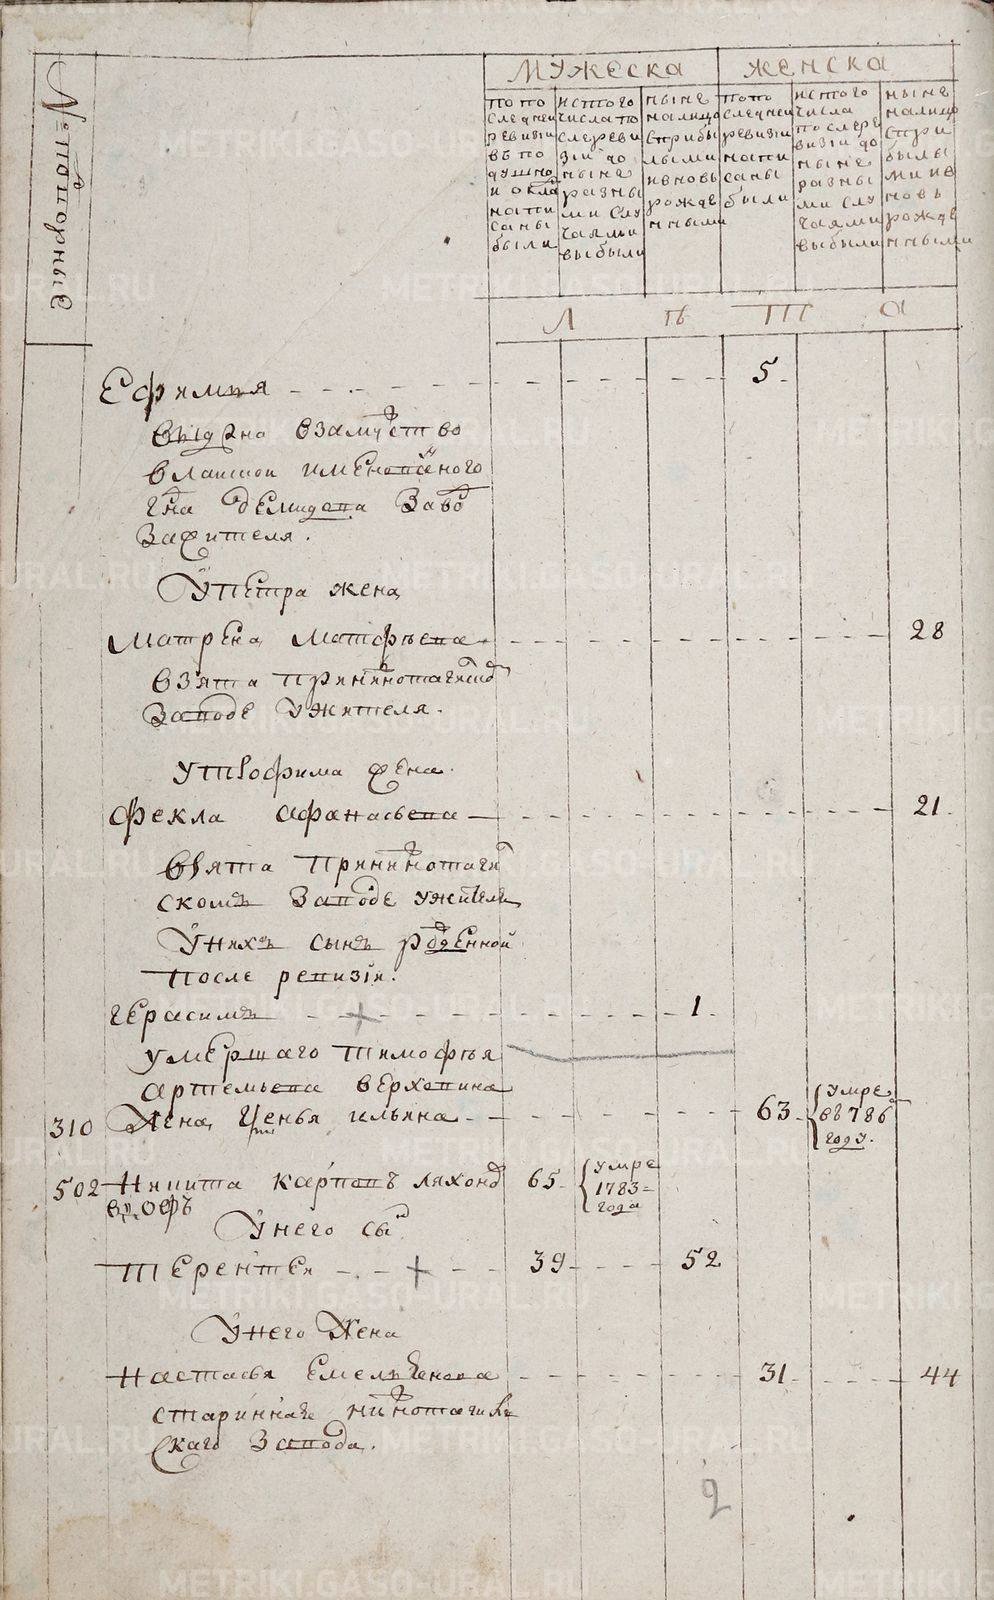 МУЖЕСКА
ЖЕНСКА
по по
следней
ревизiи
въ по
душно
и окла
напи
саны
были
ис того
числа по
сле реви
зiи до
ныне
разны
ми слу
чаями
выбыли
ныне
на лицо
с прибы
лыми
и вновь
рожде
нными
по по
следней
ревизiи
напи
саны
были
ис того
числа
после ре
визiи до
ныне
разны
ми слу
чаями
выбыли
ныне
на лицо
с при
былы
ми и в
новь
рожде
нными
Л ѣ Т А
Ефимия 5
выдана взамуство
гна демидова Заво
Зажителя.
У петра жена
Матрена Матфѣева 28
взята
Заводе У жителя.
У трофима жена
Фекла афанасьева 21
взята при нижнотаги
скомъ Заводе ужителя
У нихъ сынъ рожденной
После ревизiи.
Герасимъ 1
умершаго тимофѣя
артемьева верховина
310 Жена ильина 63 умре въ 786 году.
502 Никита карповъ ляховъ 65 умре 1783 года
У него сынъ
Терентей 39 52
У него Жена
Настасья Емельянова 31 44
нижнотагиль
скаго Завода.
2
METRIKI.GASO-URAL.RU